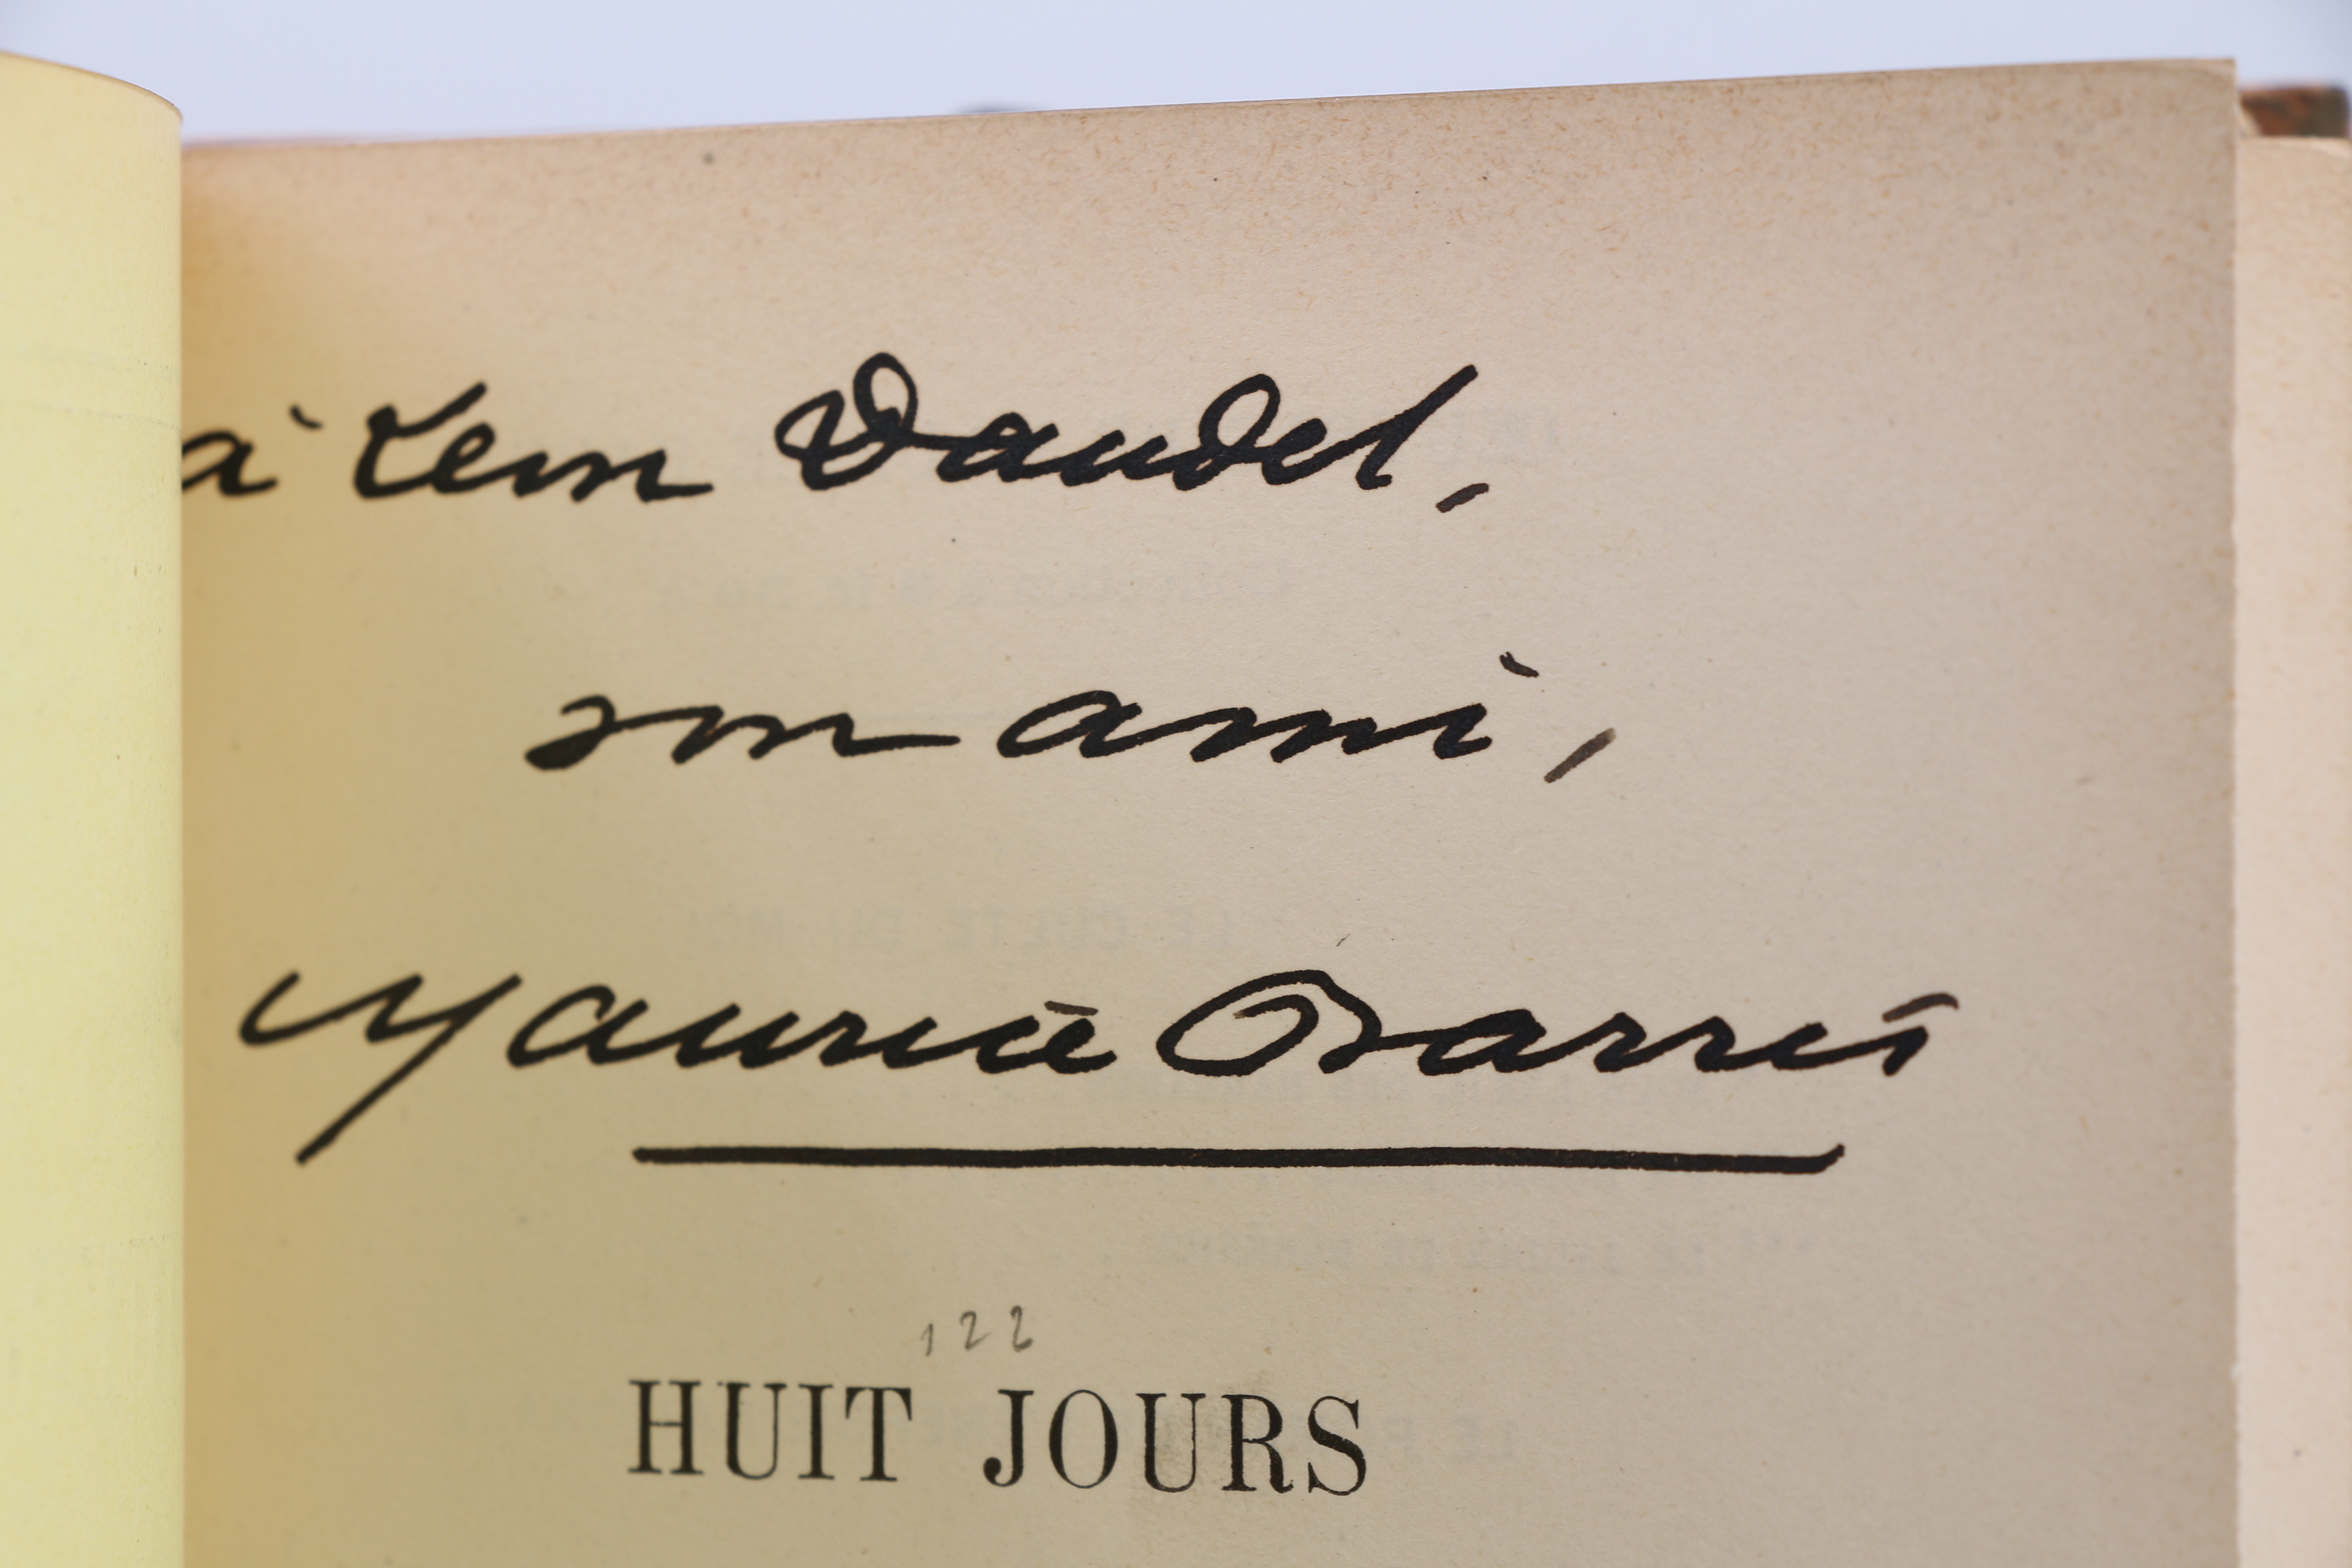 à Leon Daudet,
son ami,
Maurice Barrès
122
HUIT JOURS